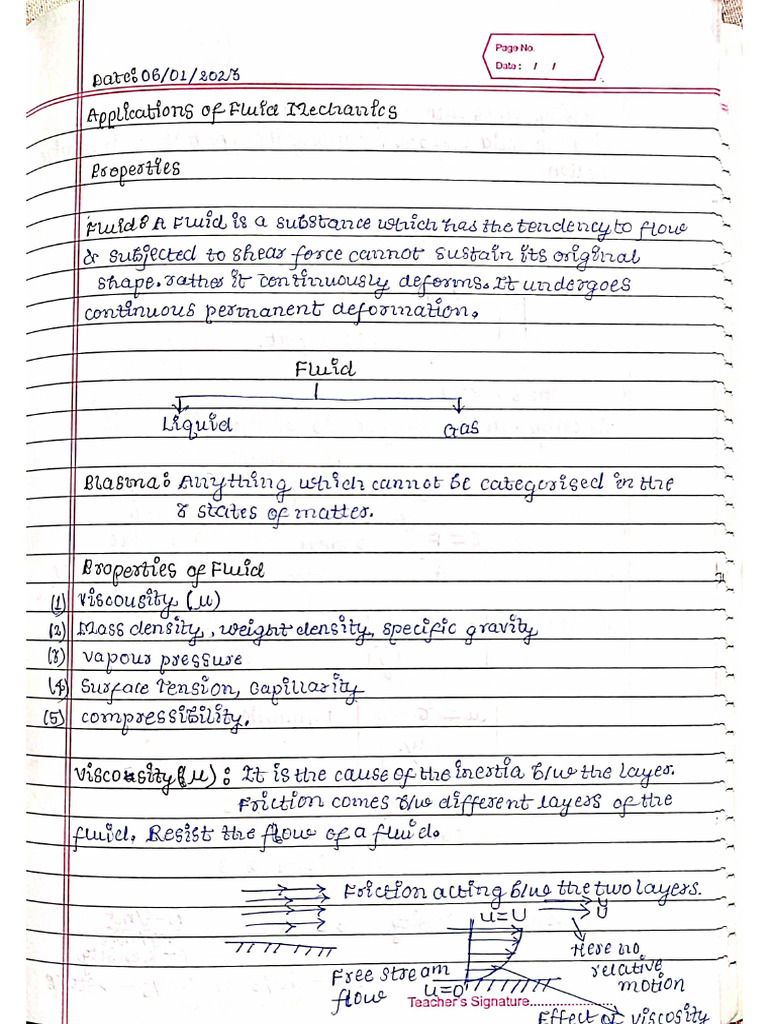 Page No.
Date : / /
Date: 06/01/2023
Applications of Fluid Mechanics
Properties
Fluid: A Fluid is a substance which has the tendency to flow
& subjected to shear force cannot sustain its original
shape. rather it continuously deforms. It undergoes
continuous permanent deformation.
Fluid
Liquid Gas
Plasma: Anything which cannot be categorised in the
3 states of matter.
Properties of Fluid
(1) Viscousity (μ)
(2) Mass density, weight density, specific gravity
(3) vapour pressure
(4) Surface Tension, Capillarity
(5) compressibility.
Viscosity (μ): It is the cause of the inertia b/w the layer.
Friction comes b/w different layers of the
fluid. Resist the flow of a fluid.
Friction acting b/w the two layers.
u=U U
Here no
relative
motion
Free stream
flow
u=0
Teacher's Signature
Effect of viscosity